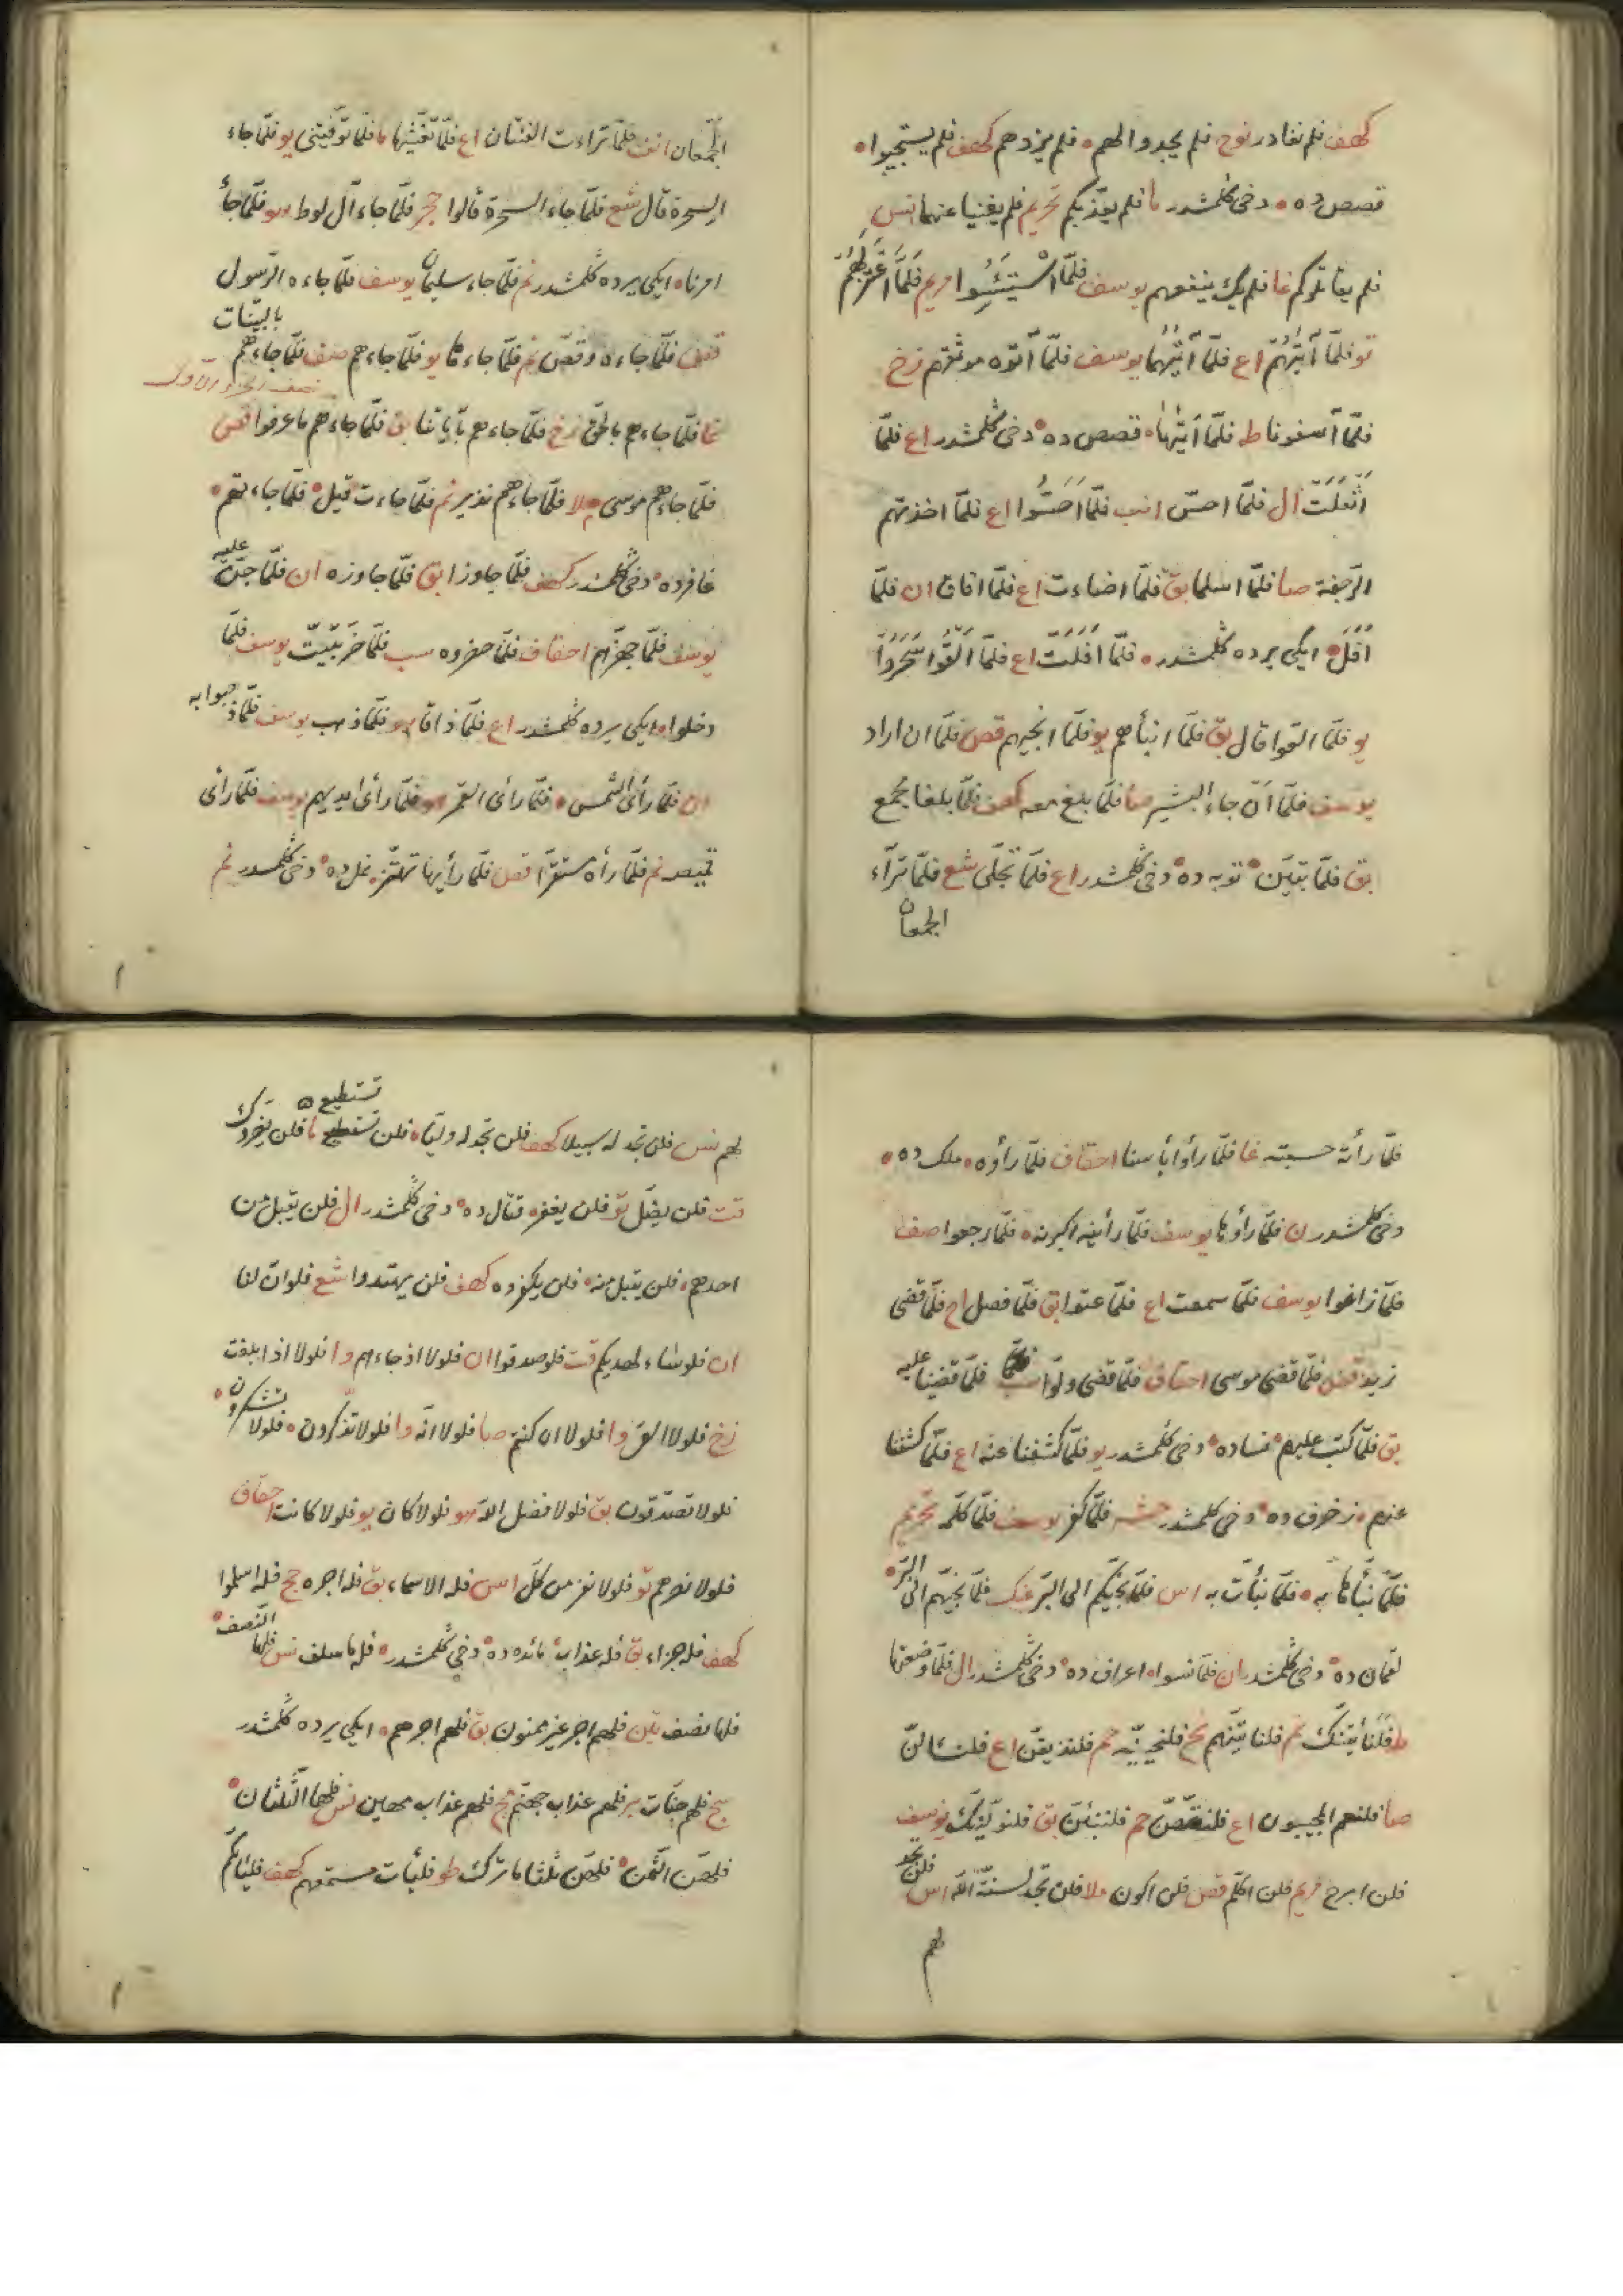 كهف فلم نغادر نوح فلم يجدوا لهم ٥ فلم يزدهم كهف فلم يستجيبوا ٥
قصص ده ٥ دخى كلمشدر ما فلم يعذبكم تحريم فلم يغنيا عنهما نس
فلم يقاتلوكم غا فلم يك ينفعهم يوسف فلمّا اسْتَيْئَسُوا مريم فَلَمَّا اعْتَزَلَهُمْ
تو فلمّا آتيهم اع فلمّا آتيهما يوسف فلمّا آتوه موثقهم زخ
فلمّا آسفونا طه فلمّا اتيها ٥ قصص ده ٥ دخى كلمشدر اع فلمّا
اَثْقَلَتْ ال فلمّا احسّ انب فلمّا اَحَسُّوا اع فلمّا اخذتهم
الرّجفة صا فلمّا اسلما بق فلمّا اضاءت اع فلمّا افاق ان فلمّا
اَفَلَ ٥ ايكى يرده كلمشدر ٥ فلمّا اَفَلَتْ اع فلمّا اَلْقَوْا سَحَرُوا
يو فلمّا القوا قال بق فلمّا انبأهم يو فلمّا انجيهم قص فلمّا ان اراد
يوسف فلمّا اَنْ جاء البشير صا فلمّا بلغ معه كهف فلمّا بلغا مجمع
بق فلمّا تبيّن ٥ توبه ده ٥ دخى كلمشدر اع فلمّا تجلّى شع فلمّا تراء
الجمعان
الجمعان انف فلمّا تراءت الفئتان اع فلمّا تغشّيها ما فلمّا توفّيتنى يو فلمّا جاء
السحرة قال شع فلمّا جاء السحرة قالوا حجر فلمّا جاء آل لوط هو فلمّا جاء
امرنا ٥ ايكى يرده كلمشدر نم فلمّا جاء سليمان يوسف فلمّا جاءه الرّسول
قصص فلمّا جاءه وقصّ نم فلمّا جاءها يو فلمّا جاءهم صف فلمّا جاءهم بالبيّنات
غا فلمّا جاءهم بالحق زخ فلمّا جاءهم بآياتنا بق فلمّا جاءهم ما عرفوا قص
فلمّا جاءهم موسى ملا فلمّا جاءهم نذير نم فلمّا جاءت قيل ٥ فلمّا جاءتهم ٥
غافرده ٥ دخى كلمشدر كهف فلمّا جاوزا بق فلمّا جاوزه ان فلمّا جنّ عليه
يوسف فلمّا جهّزهم احقاف فلمّا حضروه سب فلمّا خرّ تبيّنت يوسف فلمّا
دخلوا ٥ ايكى يرده كلمشدر اع فلمّا ذاقا هو فلمّا ذهب يوسف فلمّا ذهبوا به
ان فلمّا رأى الشّمس ٥ فلمّا رأى القمر هو فلمّا رأى ايديهم يوسف فلمّا رأى
قميصه نم فلمّا رآه مستقرّا قص فلمّا رأيها تهتزّ ٥ نمل ده ٥ دخى كلمشدر نم
فلمّا رأته حسبته غا فلمّا رأوا بأسنا احقاف فلمّا رأوه ٥ ملك ده ٥
دخى كلمشدر ن فلمّا رأوها يوسف فلمّا رأينه اكبرنه ٥ فلمّا رجعوا صف
فلمّا زاغوا يوسف فلمّا سمعت اع فلمّا عتوا بق فلمّا فصل اح فلمّا قضى
زيد قص فلمّا قضى موسى احقاف فلمّا قضى ولّوا سب فلمّا قضينا عليه
بق فلمّا كتب عليهم ٥ نساده ٥ دخى كلمشدر يو فلمّا كشفنا عنه اع فلمّا كشفنا
عنهم ٥ زخرف ده ٥ دخى كلمشدر حشر فلمّا كفر يوسف فلمّا كلّمه تحريم
فلمّا نبّأها به ٥ فلمّا نبّأت به اس فلمّا نجّيكم الى البرّ عنك فلمّا نجّيهم الى البرّ ٥
لقمان ده ٥ دخى كلمشدر ان فلمّا نسوا ٥ اعراف ده ٥ دخى كلمشدر ال فلمّا وضعتها
ط فلنأتينّك نم فلنأتينّهم نح فلنحيينّه حم فلنذيقنّ اع فلنسألنّ
صا فلنعم المجيبون اع فلنقصّنّ حم فلننبّئنّ بق فلنولّينّك يوسف
فلن ابرح مريم فلن اكلّم قص فلن اكون ملا فلن تجد لسنّة الله اس فلن تجد
لهم
لهم نس فلن تجد له سبيلا كهف فلن تجد له وليّا ٥ فلن تستطيع ما فلن يضرّوك
قت فلن يضلّ تو فلن يغفر ٥ قتال ده ٥ دخى كلمشدر ال فلن يقبل من
احدهم ٥ فلن يقبل منه ٥ فلن يكفروه كهف فلن يهتدوا شع فلو انّ لنا
ان فلو شاء لهديكم قت فلو صدقوا ان فلولا اذ جاءهم وا فلولا اذا بلغت
زخ فلولا القى وا فلولا ان كنتم صا فلولا انّه وا فلولا تذكّرون ٥ فلولا تشكرون ٥
فلولا تصدّقون بق فلولا فضل الله هو فلولا كان يو فلولا كانت احقاف
فلولا نصرهم تو فلولا نفر من كلّ اس فله الاسماء بق فله اجره حج فله اسلموا
كهف فله جزاء بق فله عذاب ٥ مائده ده ٥ دخى كلمشدر ٥ فله ما سلف نس فلها النّصف ٥
فلها نصف تين فلهم اجر غير ممنون بق فلهم اجرهم ٥ ايكى يرده كلمشدر
سج فلهم جنّات بر فلهم عذاب جهنّم حج فلهم عذاب مهين نس فلهما الثّلثان ٥
فلهنّ الثّمن ٥ فلهنّ ثلثا ما ترك طو فليأت مستمعهم كهف فليأتكم